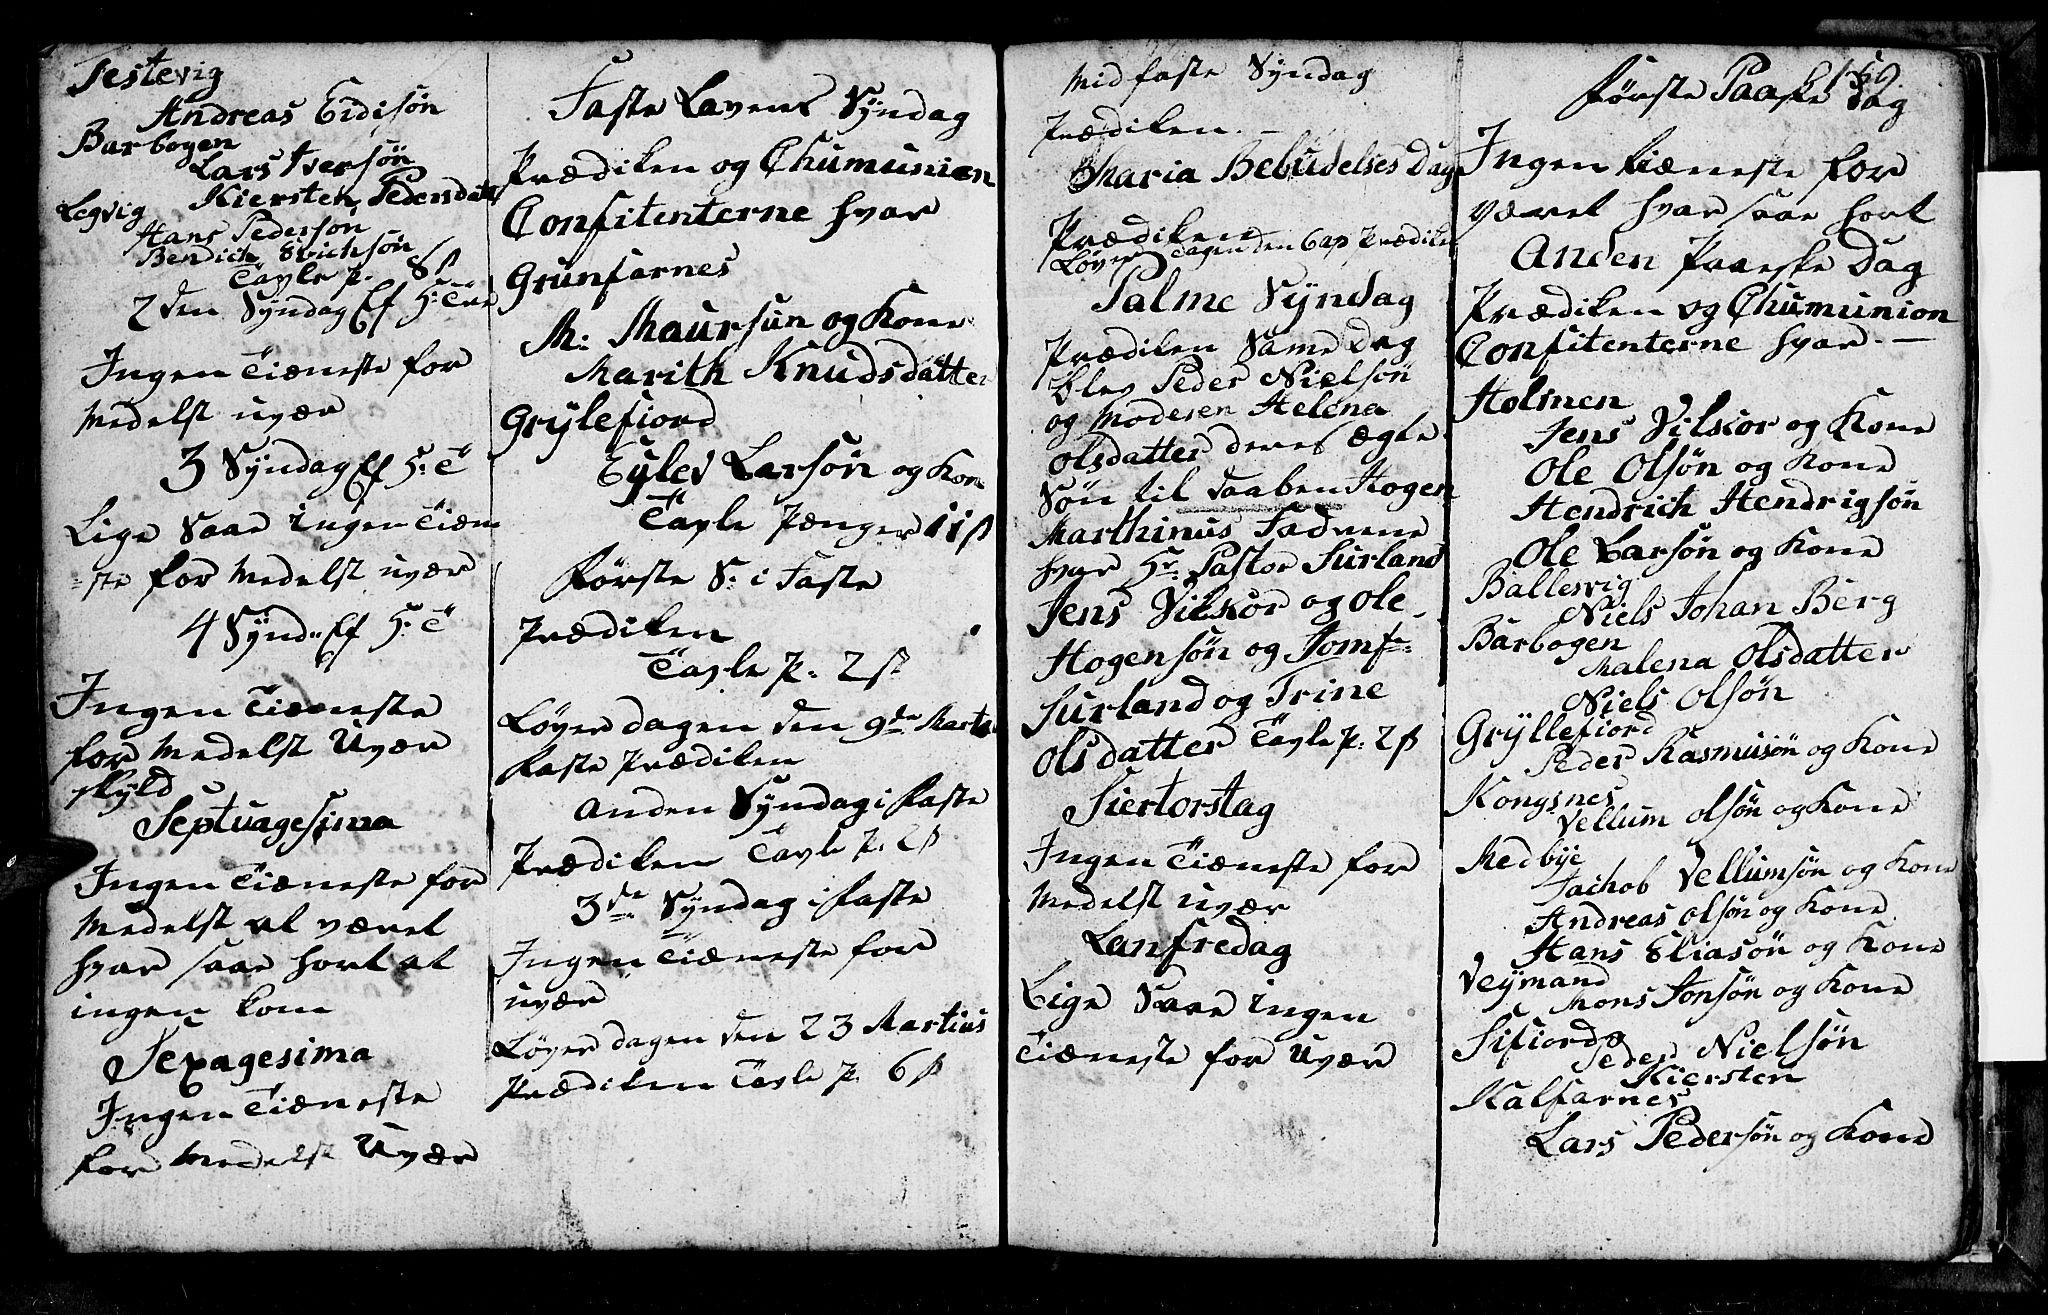 Testevig
Andreas Eidisøn
Barbogen
Lars Iversøn
Kiersten Pedersdatt
Legvig
Hans Pedersøn
Bendich Erichsøn
Tavle P. 8 ß
2den Syndag Ef H: Tre
Ingen Tiæneste for
Medelst uvær
3 Syndag Ef H: T
Lige Saae ingen Tiæn
=ste for Medelst uvær
4 Synd: Ef H: T
Ingen Tiæneste
for Medelst Uvær
skyld
Septuagesima
Ingen Tiæneste for
Medelst at været
hvar saae hort at
ingen kom
Sexagesima
Ingen Tiæneste
for Medelst Uvær
Faste Lavens Syndag
Prædiken og Chumunion
Confitenterne hvar
Grunfarnes
M: Maursun og Kone
Marith Knudsdatter
Grylefiord
Eylev Larsøn og Kon
Tavle Pænger 11 ß
Første S: i Faste
Prædiken
Tavle P: 2 ß
Løver dagen den 9de Martii
Faste Prædiken
Anden Syndag i Faste
Prædiken Tavle P: 2 ß
3de Syndag i Faste
Ingen Tiæneste for
uvær
Løver dagen den 23 Martius
Prædiken Tavle P. 6 ß
Mid faste Syndag
Prædiken.
Maria Bebudelses Dag
Prædiken
Løver Dagen den 6 ap Prædiken
Palme Syndag
Prædiken Same Dag
blev Peder Nielsøn
og Moderen Helena
Olsdatter deres Ægte
Søn til Daaben Hogen
Marthinus Fadrene
hvar Hr: Pastor Surland
Jens Vilskor og Ole
Hogensøn og Jomfr:
Surland og Trine
Olsdatter Tavle P: 2 ß
Siertorstag
Ingen Tiæneste for
Medelst uvær
Lanfredag
Lige Saae ingen
Tiæneste for Uvær
159
Første Paaske Dag
Ingen tiæneste for
været hvar saae hort
Anden Paaske Dag
Prædiken og Chumunion
Confitenterne hvar
Holmen
Jens Vilskor og Kone
Ole Olsøn og Kone
Hendrich Hendrigsøn
Ole Larsøn og Kone
Ballesvig
Niels Johan Berg
Barbogen
Malena Olsdatter
Niels Olsøn
Gryllefiord
Peder Rasmusøn og Kone
Kongsnes
Vellum Olsøn og Kone
Medbye
Jachob Vellumsøn og Kone
Andreas Olsøn og Kone
Hans Eliasøn og Kone
Veymand
Mons Jonsøn og Kone
Sifiord
Peder Nielsøn
Kiersten
Kalfarnes
Lars Pedersøn og Kone